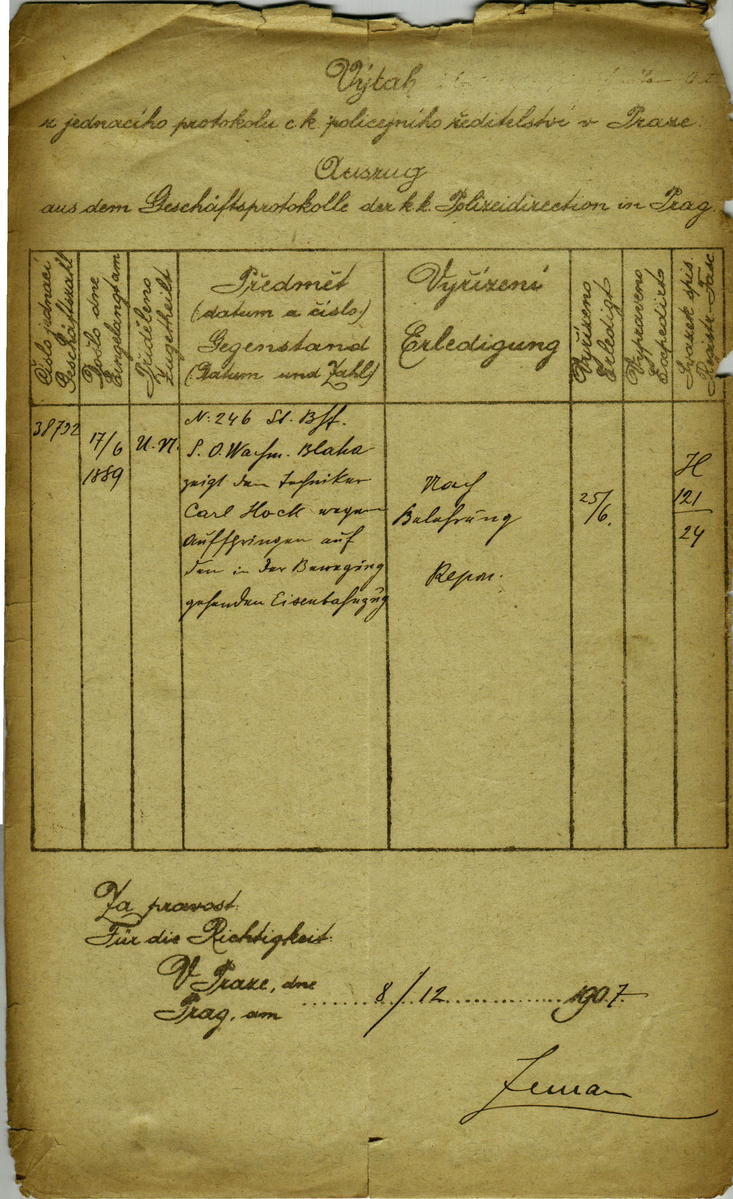 Výtah
z jednacího protokolu c.k. policejního ředitelství v Praze.
Auszug
aus dem Geschäftsprotokolle der k.k. Polizeidirection in Prag.
Číslo jednací
Geschäftszahl
Došlo dne
Eingelangt am
Přiděleno
Zugetheilt
Předmět
(datum a číslo)
Gegenstand
(Datum und Zahl)
Vyřízení
Erledigung
Vyřízeno
Erledigt
Vypraveno
Expedirt
Svazek spis.
Registr. Fasc.
38792
17/6
1889
U. N.
N: 246 St. Bhf.
S. O. Wachm. Blaha
zeigt den Techniker
Carl Hock wegen
Aufspringen auf
den in der Bewegung
gehenden Eisenbahnzug
Nach
Belehrung
Repon.
25/6.
H
121
24
Za pravost:
Für die Richtigkeit:
V Praze, dne
Prag, am 8/12 1907.
Zeman